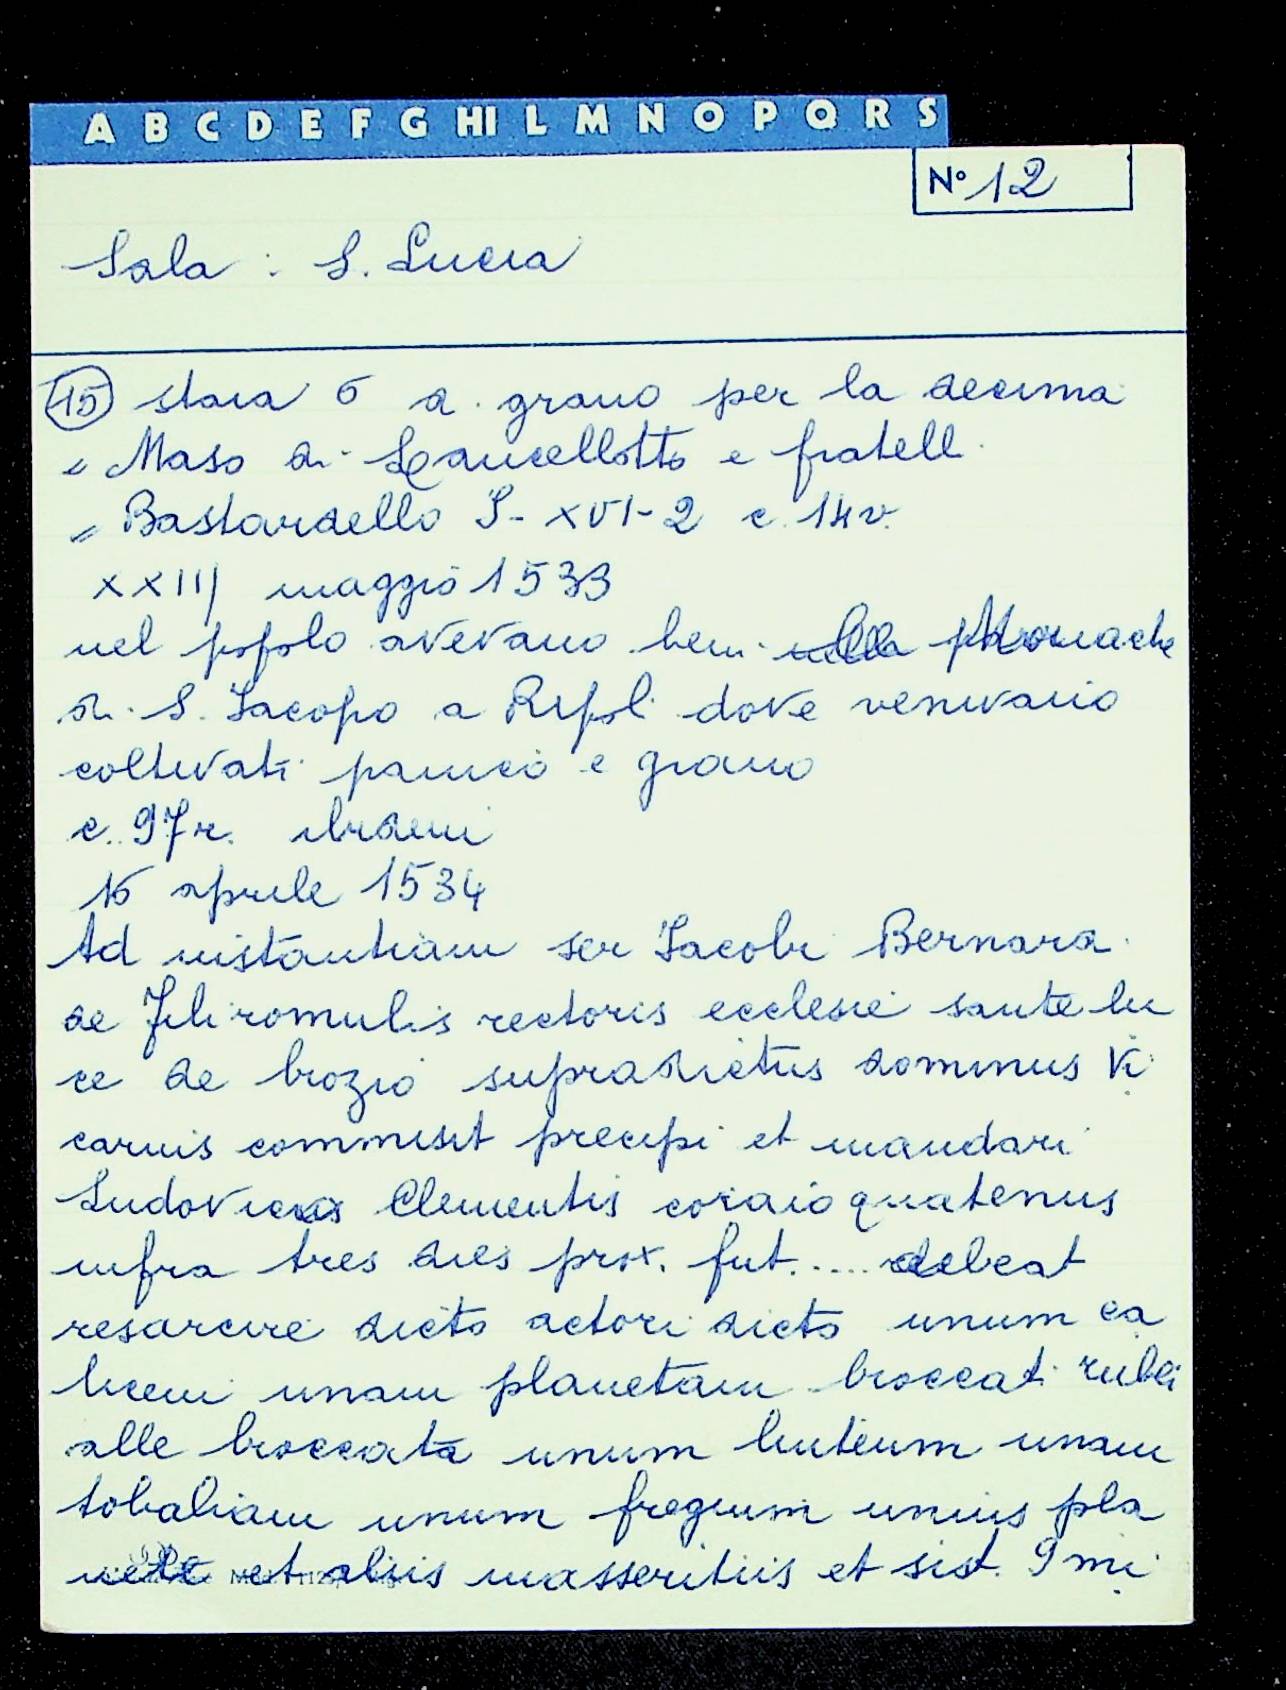 A B C D E F G HI L M N O P Q R S
N° 12
Sala : S. Lucia
15 staia 6 di grano per la decima
" Maso di Lancellotto e fratelli
" Bastardello S-XVI-2 c. 14v.
XXIIJ maggio 1533
nel popolo avevano beni nella Monache
di S. Jacopo a Ripoli dove venivano
coltivati panico e grano
c. 97r. ibidem
16 aprile 1534
Ad instantiam ser Jacobi Bernardi
de Filiromulis rectoris ecclesie sante lu
ce de bozio supradictus dominus Vi
carius commisit precipi et mandari
Ludovicus Clementis coraio quatenus
infra tres dies prox. fut..... debeat
resarcire dicto actori dicto unum ca
licem unam planetam broccati rubei
alle broccata unum linteum unam
tobaliam unum fregium unius pla
nete et aliis masseritiis et sist. 9 mi